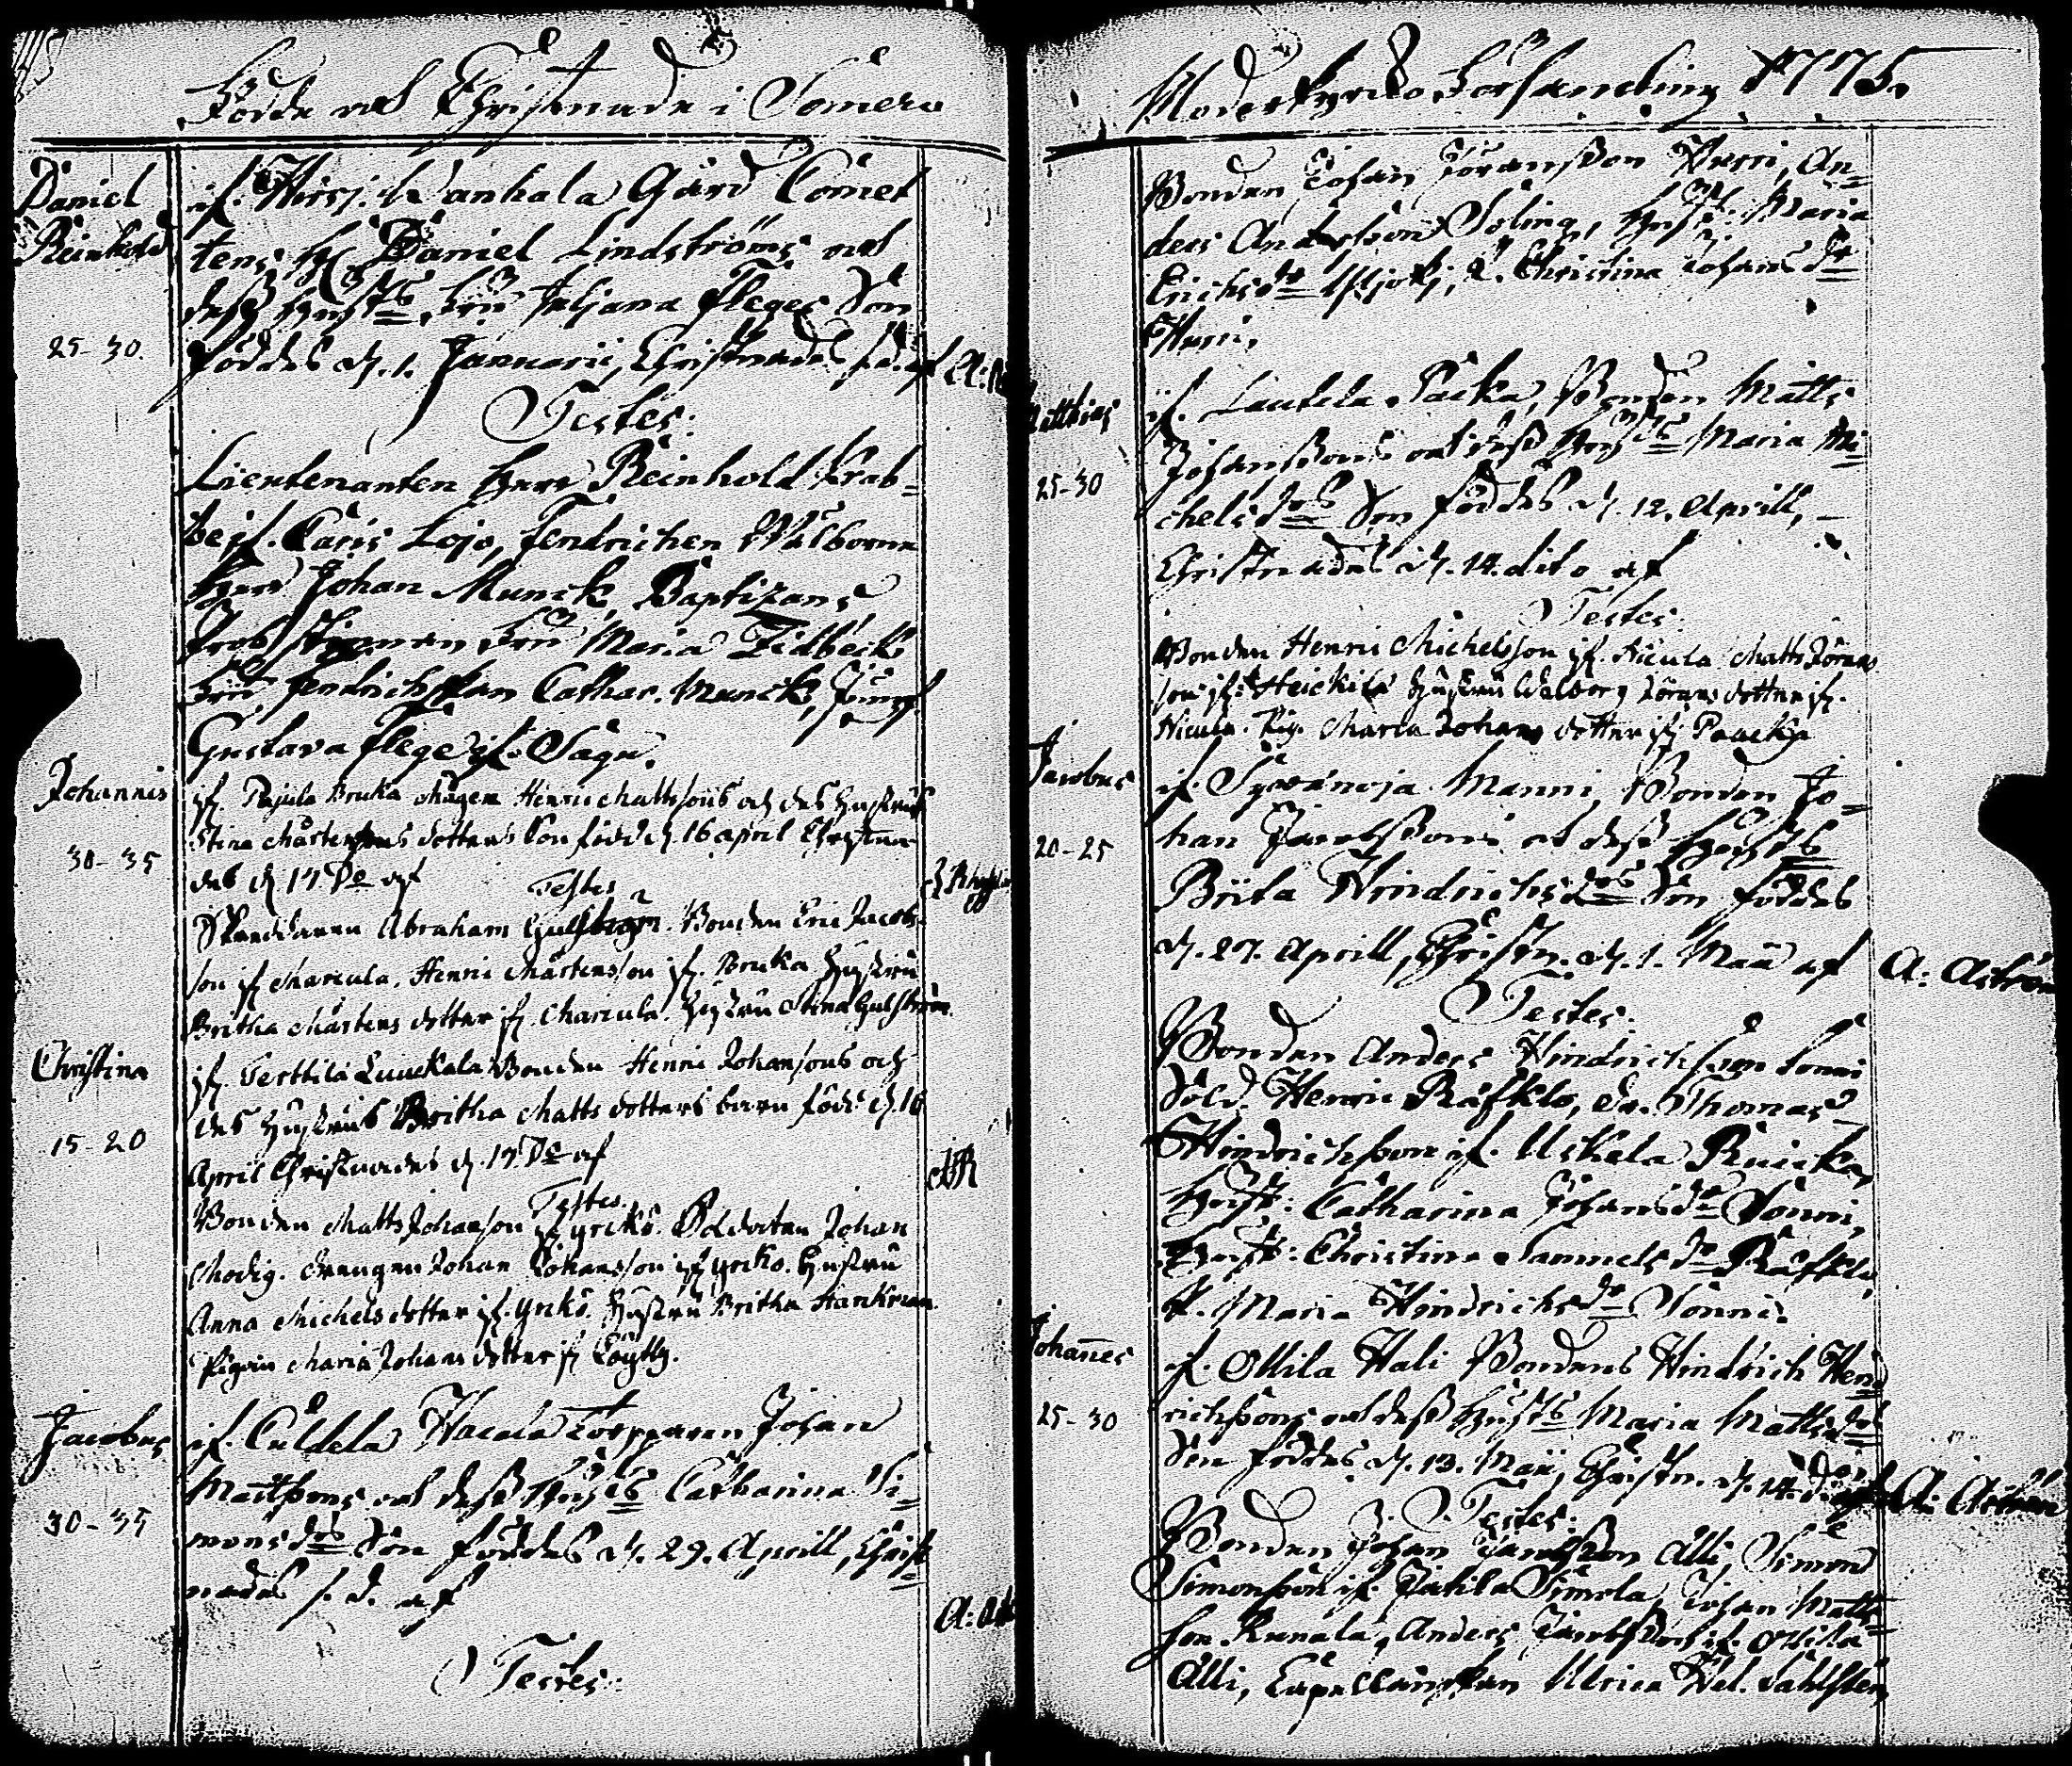 Födde och Christnade i Somero
Daniel
Reinhold
25-30.
if. Hirsj. Wanhala Gård Cornet
tens H Daniel Lindströms och
dess hust:s Fru Juliana Fleges Son
föddes d. 1. Januarii, Christnades s. d. af A:
Testes:
Lieutenanten Herr Reinhold Krab-
be if. Caris Lojo, Fendrichen Wälborne
Herr Johan Munck, Baptizans
Fru Maria Zidbeck
Fru Fendrichskan Cathar. Munck, Jungf.
Gustava Flege if. Sagu.
Johannis
30-35
if. Pajula Bruka Mågen Henric Mattssons och des hustrus
Stina Mårtens dotters Son född d. 16 april Christna-
des d. 17 Do af
Testes
Abraham Gulström. Bonden Eric Jacobs-
son if Marcula. Henric Mårtensson if. Bruka Hustru
Britha Mårtens dotter if. Marcula. Hustru Stina Gulström.
Christina
15-20
if. Terttilä Luuckala Bonden Henric Johanssons och
des hustrus Britha Matts dotters barn född d. 16
April Christnades d. 17 Do af
Testes
Bonden Matts Johansson if yrkö. Soldaten Johan
Modig. drengen Johan Johansson if yrkö. Hustru
Anna Michels dotter if. yrkö. Hustru Britha
Pigan Maria Johans dotter if
Jacobus
30-35
if. Culdela Torpparen Johan
Mattssons och dess Hust:s Catharina Si-
mons d:rs Son föddes d. 29. Aprill, Christ
nades s. d. af
A:
Testes:
Moderkyrko Församling 1775.
Bonden Johan Jöransson Hurri, An-
ders Andersson Soling, Hust: Maria
Erichs dr P. Christina Johans dr
Hurri.
Matthias
25-30
if. Lautela Packa, Bonden Matts
Johanssons och dess Hust:s Maria Mi-
chels d:rs Son föddes d. 12. Aprill,
Christnades d. 14. dito af
Testes
Bonden Henric Michelsson if. Nicula Matts Jörans
son if. Heickilä Hustru Walborg Jörans dotter if.
Nicula. Pig. Maria Johans dotter if Paacka
Jacobus
20-25
if. Sywänoja Manni, Bonden Jo-
han Jacobssons och dess Hust:s
Brita Hindrichs d:rs Son föddes
d. 27. Aprill, Christn. d. 1. Maii af A: Aström
Testes:
Bonden Anders Hindrichsson Sonni
Sold. Henric Räfklo, Dr. Thomas
Hindrichsson if. Uskela Ruicka,
Hust: Catharina Johans dr Sonni,
Hust: Christina Samuels dr Räfklo,
P. Maria Hindrichs dr Sonni.
Johannes
25-30
if. Ollila Hali Bondens Hindrich Hen-
richssons och dess Hust:s Maria Matts d:rs
Son föddes d. 13. Maii, Christn. d. 14. A: Aström
Testes:
Bonden Johan Jacobsson Alli, Simon
Simonsson if. Simola, Johan Matts-
son Runala, Anders Jacobsson if. Ollila
Alli, Capellanskan Ulrica Hel. Sahlsten